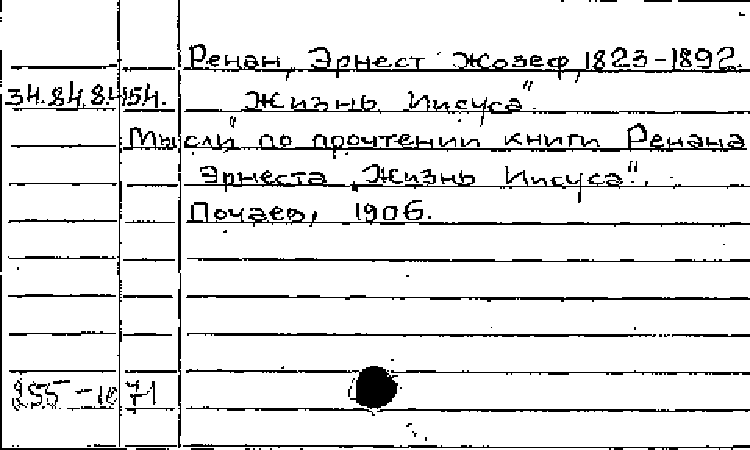 Ренан, Эрнест Жозеф, 1823-1892.
34.84.8.454. „Жизнь Иисуса"
Мысли по прочтении книги Ренана
Эрнеста „Жизнь Иисуса".
Почаев, 1906.
71